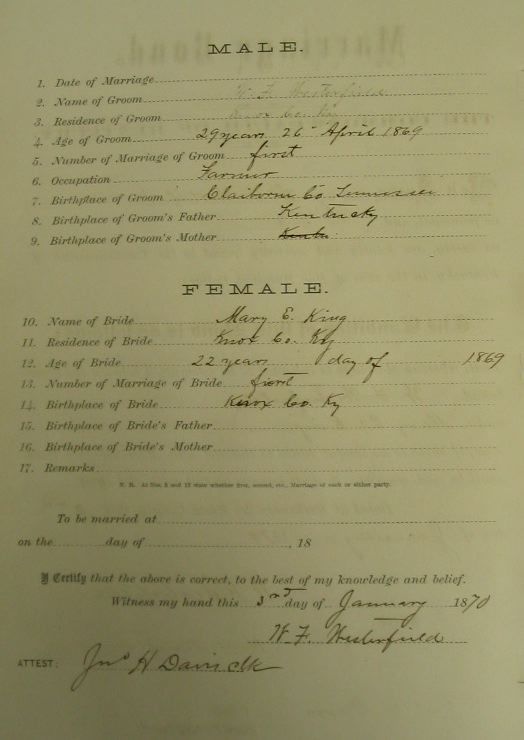 MALE.
1. Date of Marriage
2. Name of Groom W. F. Westerfield
3. Residence of Groom Knox Co. Ky
4. Age of Groom 29 years 26 April 1869
5. Number of Marriage of Groom first
6. Occupation Farmer
7. Birthplace of Groom Claiborne Co Tennessee
8. Birthplace of Groom's Father Kentucky
9. Birthplace of Groom's Mother
FEMALE.
10. Name of Bride Mary E. King
11. Residence of Bride Knox Co. Ky
12. Age of Bride 22 years day of 1869
13. Number of Marriage of Bride first
14. Birthplace of Bride Knox Co. Ky
15. Birthplace of Bride's Father
16. Birthplace of Bride's Mother
17. Remarks
N. B. At Nos. 5 and 13 state whether first, second, etc., Marriage of each or either party.
To be married at
on the day of , 18
I Certify that the above is correct, to the best of my knowledge and belief.
Witness my hand this 3rd day of January 1870
W. F. Westerfield
ATTEST: Jno H Davis clk